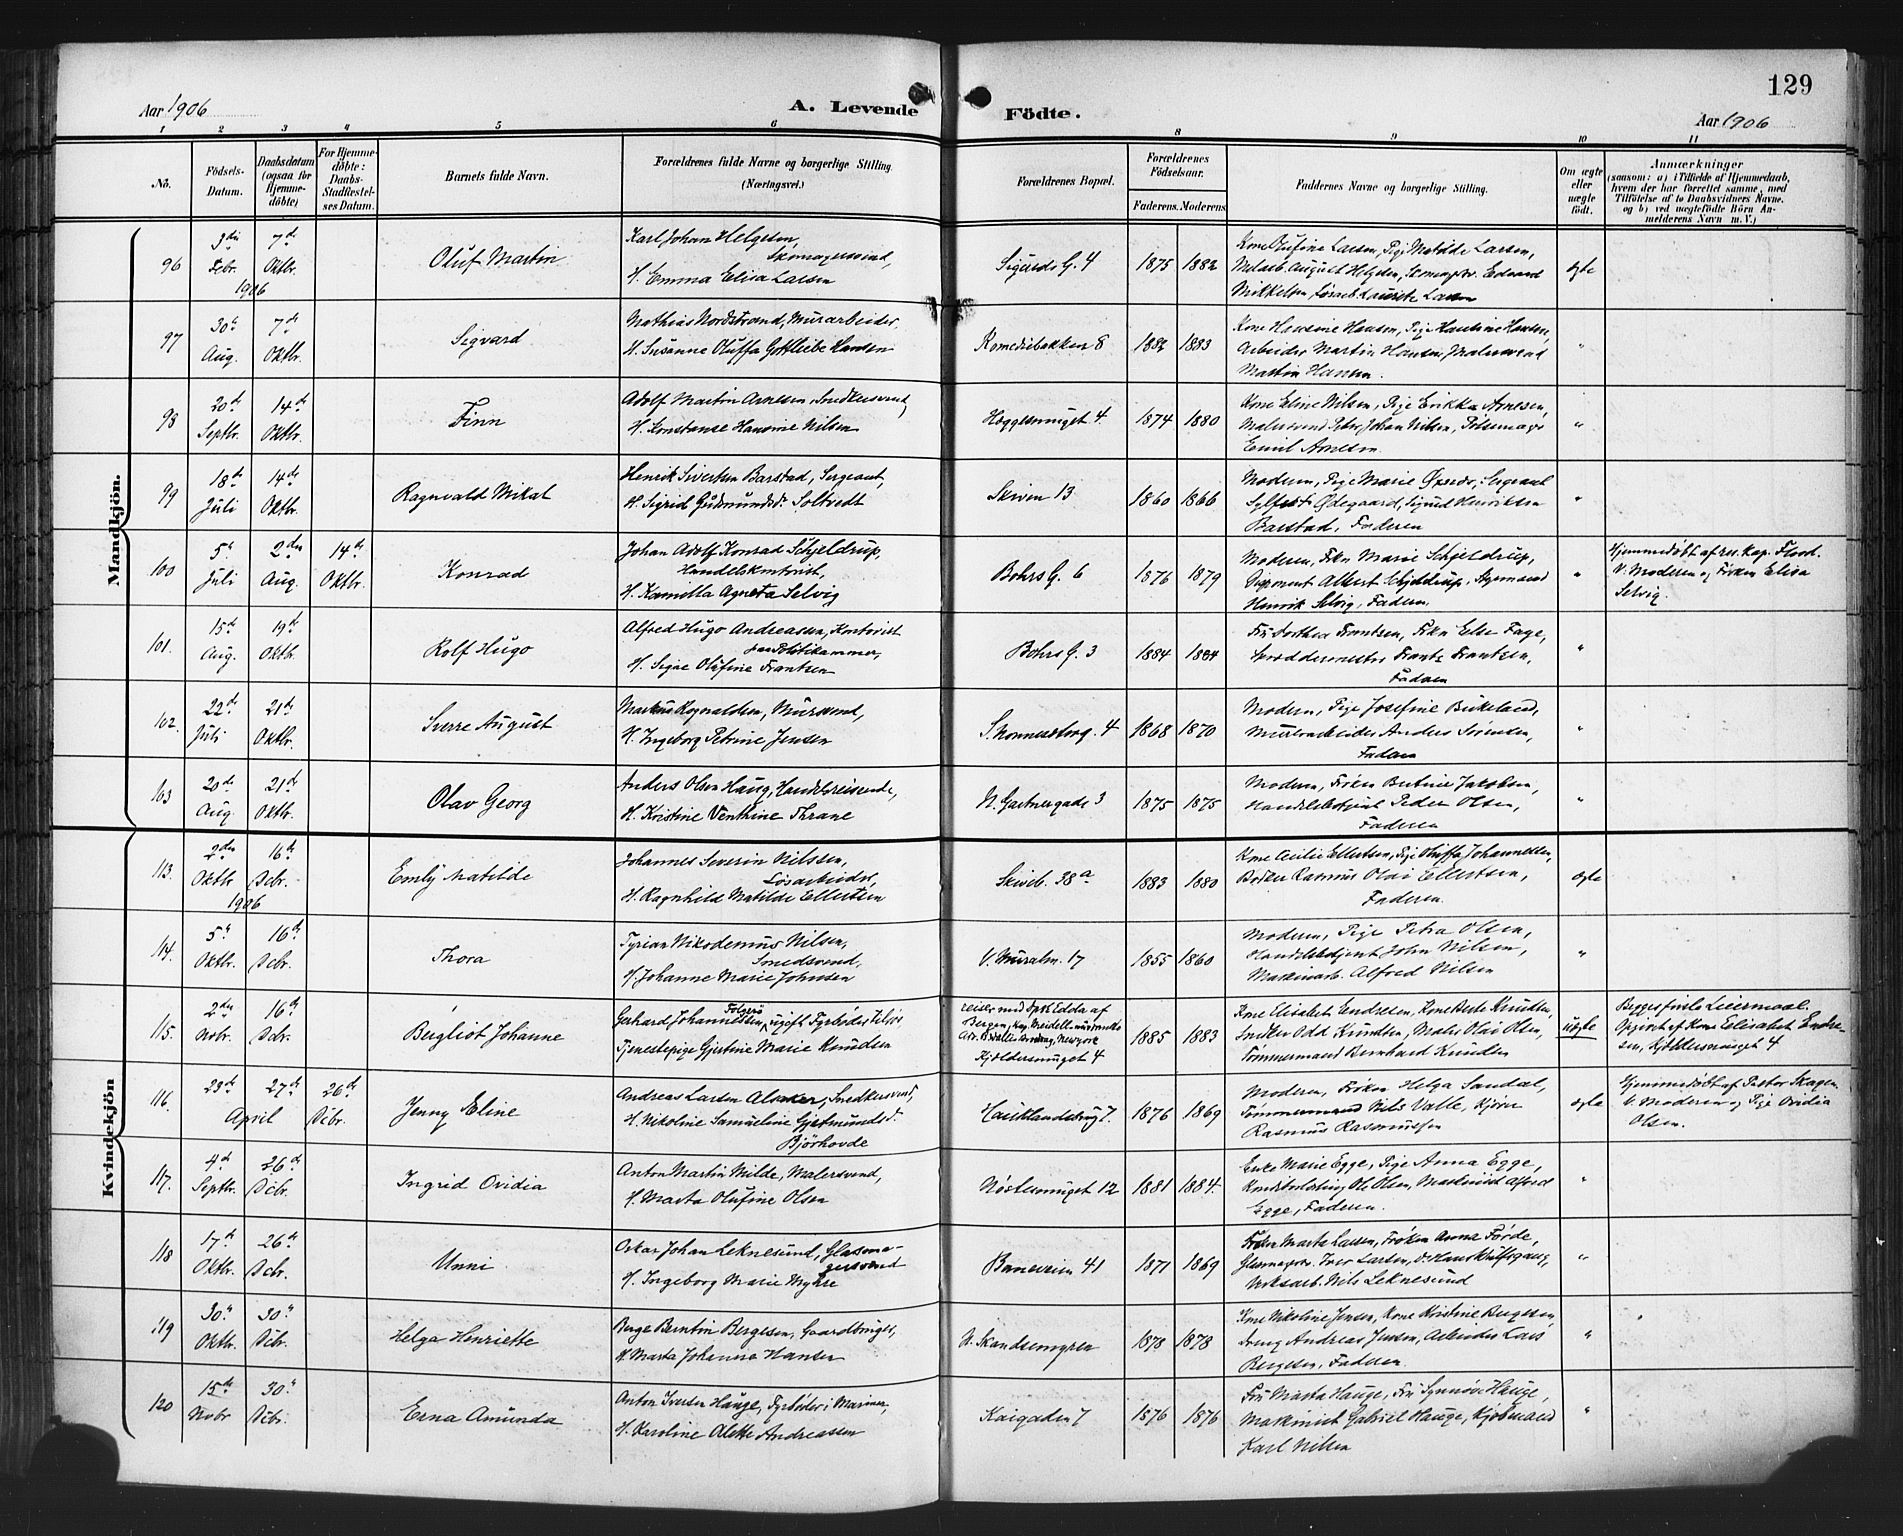 129
Aar 1906
A. Levende Födte.
Aar 1906
1 2 3 4 5 6 8 9 10 11
No.
Födsels-Datum.
Daabsdatum (ogsaa for Hjemme-döbte)
For Hjemme-döbte: Daabs-Stadfestel-ses Datum.
Barnets fulde Navn.
Forældrenes fulde Navne og borgerlige Stilling. (Næringsvei.)
Forældrenes Bopæl.
Forældrenes Födselsaar.
Faderens. Moderens.
Faddernes Navne og borgerlige Stilling.
Om ægte eller uægte födt.
Anmærkninger
(saasom: a) i Tilfælde af Hjemmedaab,
hvem der har forrettet samme, med
Tilföielse af to Daabsvidners Navne.
og b) ved uægtefödte Börn An-
melderens Navn m. V.)
Mandkjön.
96 3die Febr. 1906 7de Oktbr. Oluf Martin
Karl Johan Helgesen, Skomagersvend,
H. Emma Elisa Larsen
Sigurds G. 4 1875 1882
Kone Olufine Larsen, Pige Matilde Larsen,
August Helgesen, Edvard
Mikkelsen, Løsarb. Laurits Larsen
ægte
97 30" Aug. 7de Oktbr. Sigvard
Mathias Nordstrand, Murarbeider,
H. Susanne Oluffa Gottliebe Hansen
Komediebakken 8 1882 1883
Kone Hansine Hansen, Pige Hansen,
Arbeider Martin Hansen, Malersvend
Martin Hansen.
"
98 20de Septbr. 14de Oktbr. Finn
Adolf Martin Arnesen, Snedkersvend,
H. Konstanse Hansine Nilsen
Heggesmuget 4 1874 1880
Kone Eline Nilsen, Pige Erikka Arnesen,
Malersvend Johan Nilsen, Pølsemager
Emil Arnesen
"
99 18de Juli 14de Oktbr. Ragnvald Mikal
Henrik Sivertsen Barstad, Sergeant,
H. Sigrid Gudmundsdr. Soltvedt
Skiven 13 1860 1866
Moderen, Pige Marie, Sergeant
Ødegaard, Sigurd Henriksen
Barstad, Faderen
"
100 5" Juli 2den Aug. 14de Oktbr. Konrad
Johan Adolf Konrad Schjeldrup,
Handelskontorist,
H. Kamilla Agneta Selvig
Bohrs G. 6 1876 1879
Moderen, Frkn Marie Schjeldrup,
Albert Schjeldrup, Styrmand
Henrik Selvig, Faderen.
"
Hjemmedøbt af res. kap. Flood.
V. Moderen og Frøken Elisa
Selvig.
101. 15de Aug. 19de Oktbr. Rolf Hugo
Alfred Hugo Andreassen, Kontorist
paa Politikammer,
H. Signe Olufine Frantsen
Bohrs G. 3 1884 1884
Fru Dorthea Frantsen, Frkn Else Fage,
Skræddermester Frants Frantsen,
Faderen
"
102. 22de Juli 21de Oktbr. Sverre August
Markus Rognaldsen, Mursvend,
H. Ingeborg Petrine Jensen
4 1868 1870
Moderen, Pige Josefine Birkeland,
Murarbeider Anders Sørensen,
Faderen
"
103 20de Aug. 21de Oktbr. Olav Georg
Anders Olsen Haug, Handelsreisende,
H. Kristine Thrane
N. Gartnergade 3 1875 1875
Moderen, Frøken Jakobsen,
Handelsbetjent Peder Olsen,
Faderen
"
Kvindekjön
113. 2den Oktbr 1906 16de Dcbr. Emly Matilde
Johannes Severin Nilssen,
Løsarbeider,
H. Ragnhild Matilde Ellertsen
Skiveb. 38a 1883 1880
Kone Cecilie Ellertsen, Pige Oluffa Johannessen,
Bødker Rasmus Olai Ellertsen,
Faderen.
ægte
114. 5" Oktbr. 16de Dcbr. Thora
Tyrian Nikodemus Nilsen,
Smedsvend,
H. Johanne Marie Johnsen
V. Muralm. 17 1855 1860
Moderen, Pige Petra Olsen,
Handelsbetjent John Nilsen,
Maskinarb. Alfred Nilsen
"
115. 2den Novbr. 16de Dcbr. Bergliot Johanne
Gerhard Johannessen Folgerø, ugift Fyrbøder tilsjøs
Tjenestepige Gjertine Marie Knudsen
reiser med Dpsk. Edda af
Bergen, Kap. Meidell nuværende
Adr. New York
Kjoldersmuget 4 1885 1883
Kone Elisabet Endresen, Kone Berte Knudsen,
Snekker Odd Knudsen, Maler Olai Olsen,
Tømmermand Bernhard Knudsen
uægte
Begges første Leiermaal.
Opgivet af Kone Elisabet Endre-
sen, Kjoldersmuget 4
116. 23de 27de April 26de Dcbr. Jenny Eline
Andreas Larsen Alsaker, Snedkersvend,
H. Nikoline Samueline Gjertmundsd.
Bjørhovde
Haukelandsveig 7. 1876 1869
Moderen, Frøken Helga Sandal,
Tømmermand Nils Valle, Kjører
Rasmus Rasmussen
ægte
Hjemmedøbt af Pastor Skagen
V. Moderen og Pige Ovidia
Olsen.
117. 4de Septbr. 26de Dcbr. Ingrid Ovidia
Anton Martin Milde, Malersvend,
H. Marta Olufine Olsen
Nøstesmuget 12 1881 1884.
Enke Marie Egge, Pige Anna Egge,
Ole Olsen, Maskinist Alfred
Egge, Faderen.
"
118 17de Oktbr. 26de Dcbr. Unni
Oskar Johan Leknesund, Glasma-
gersvend
H. Ingeborg Marie Myhre
Baneveien 41 1871 1869
Frøken Marta Larsen, Frøken Anna Førde,
Glasmager Iver Larsen,
Verksarb. Nils Leknesund
"
119 30" Oktbr. 30" Dcbr. Helga Henriette
Berge Berntin Bergesen, Gaardbruger,
H. Marta Johanna Hansen
N. Skandsemyren 1878 1878
Kone Nikoline Jensen, Kone Kristine Bergesen,
Dreng Andreas Jensen, Arbeider Lars
Bergesen, Faderen.
"
120 15de Novbr 30" Dcbr. Erna Amunda
Anton Iversen Hauge, Fyrbøder i Marinen,
H. Karoline Olette Andreassen
Kaigaden 7 1876 1876
Fru Marta Hauge, Fru Synnøve Hauge,
Maskinist Gabriel Hauge, Kjøbmand
Karl Nilsen
"